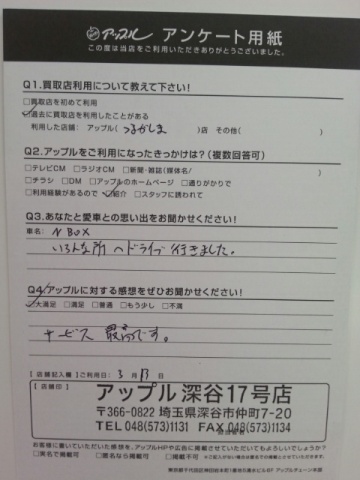 アップル アンケート用紙
この度は当店をご利用いただきありがとうございました。
Q1.買取店利用について教えて下さい!
□買取店を初めて利用
☑過去に買取店を利用したことがある
利用した店舗: アップル( つるがしま )店 その他( )
Q2.アップルをご利用になったきっかけは?(複数回答可)
□テレビCM □ラジオCM □新聞・雑誌(媒体名/ )
□チラシ □DM □アップルのホームページ □通りがかりで
□利用経験があるので ☑紹介 □スタッフに誘われて
Q3.あなたと愛車との思い出をお聞かせください!
車名: N BOX
いろんな所へドライブ行きました。
Q4.アップルに対する感想をぜひお聞かせください!
☑大満足 □満足 □普通 □もう少し □不満
サービス最高です。
【店舗記入欄】ご利用日: 3月13日
【店舗印】
アップル 深谷17号店
〒366-0822 埼玉県深谷市仲町7-20
TEL 048(573)1131 FAX 048(573)1134
お客様に書いていただいた感想を、アップルHPや広告に掲載させていただいてもよろしいでしょうか?
□実名で掲載可 □匿名なら掲載可 □掲載不可